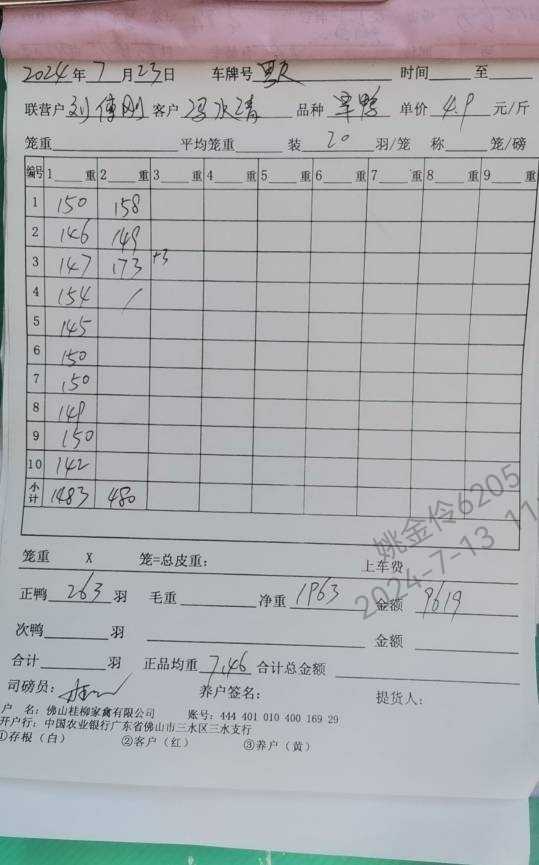 2024年7月23日 车牌号 时间 至
联营户 刘 刚 客户 冯水清 品种 鸭 单价 4.9 元/斤
笼重 平均笼重 装 20 羽/笼 称 笼/磅
编号 1 重 2 重 3 重 4 重 5 重 6 重 7 重 8 重 9 重
1 150 158
2 146 149
3 147 173 +3
4 154 /
5 145
6 150
7 150
8 149
9 150
10 142
小计 1483 480
笼重 X 笼=总皮重: 上车费
正鸭 263 羽 毛重 净重 1963 金额 9619
次鸭 羽 金额
合计 羽 正品均重 7.46 合计总金额
司磅员: 养户签名: 提货人:
户 名: 佛山桂柳家禽有限公司 账号: 444 401 010 400 169 29
开户行: 中国农业银行广东省佛山市三水区三水支行
①存根(白) ②客户(红) ③养户(黄)
姚金伶6205
2024-7-13 11